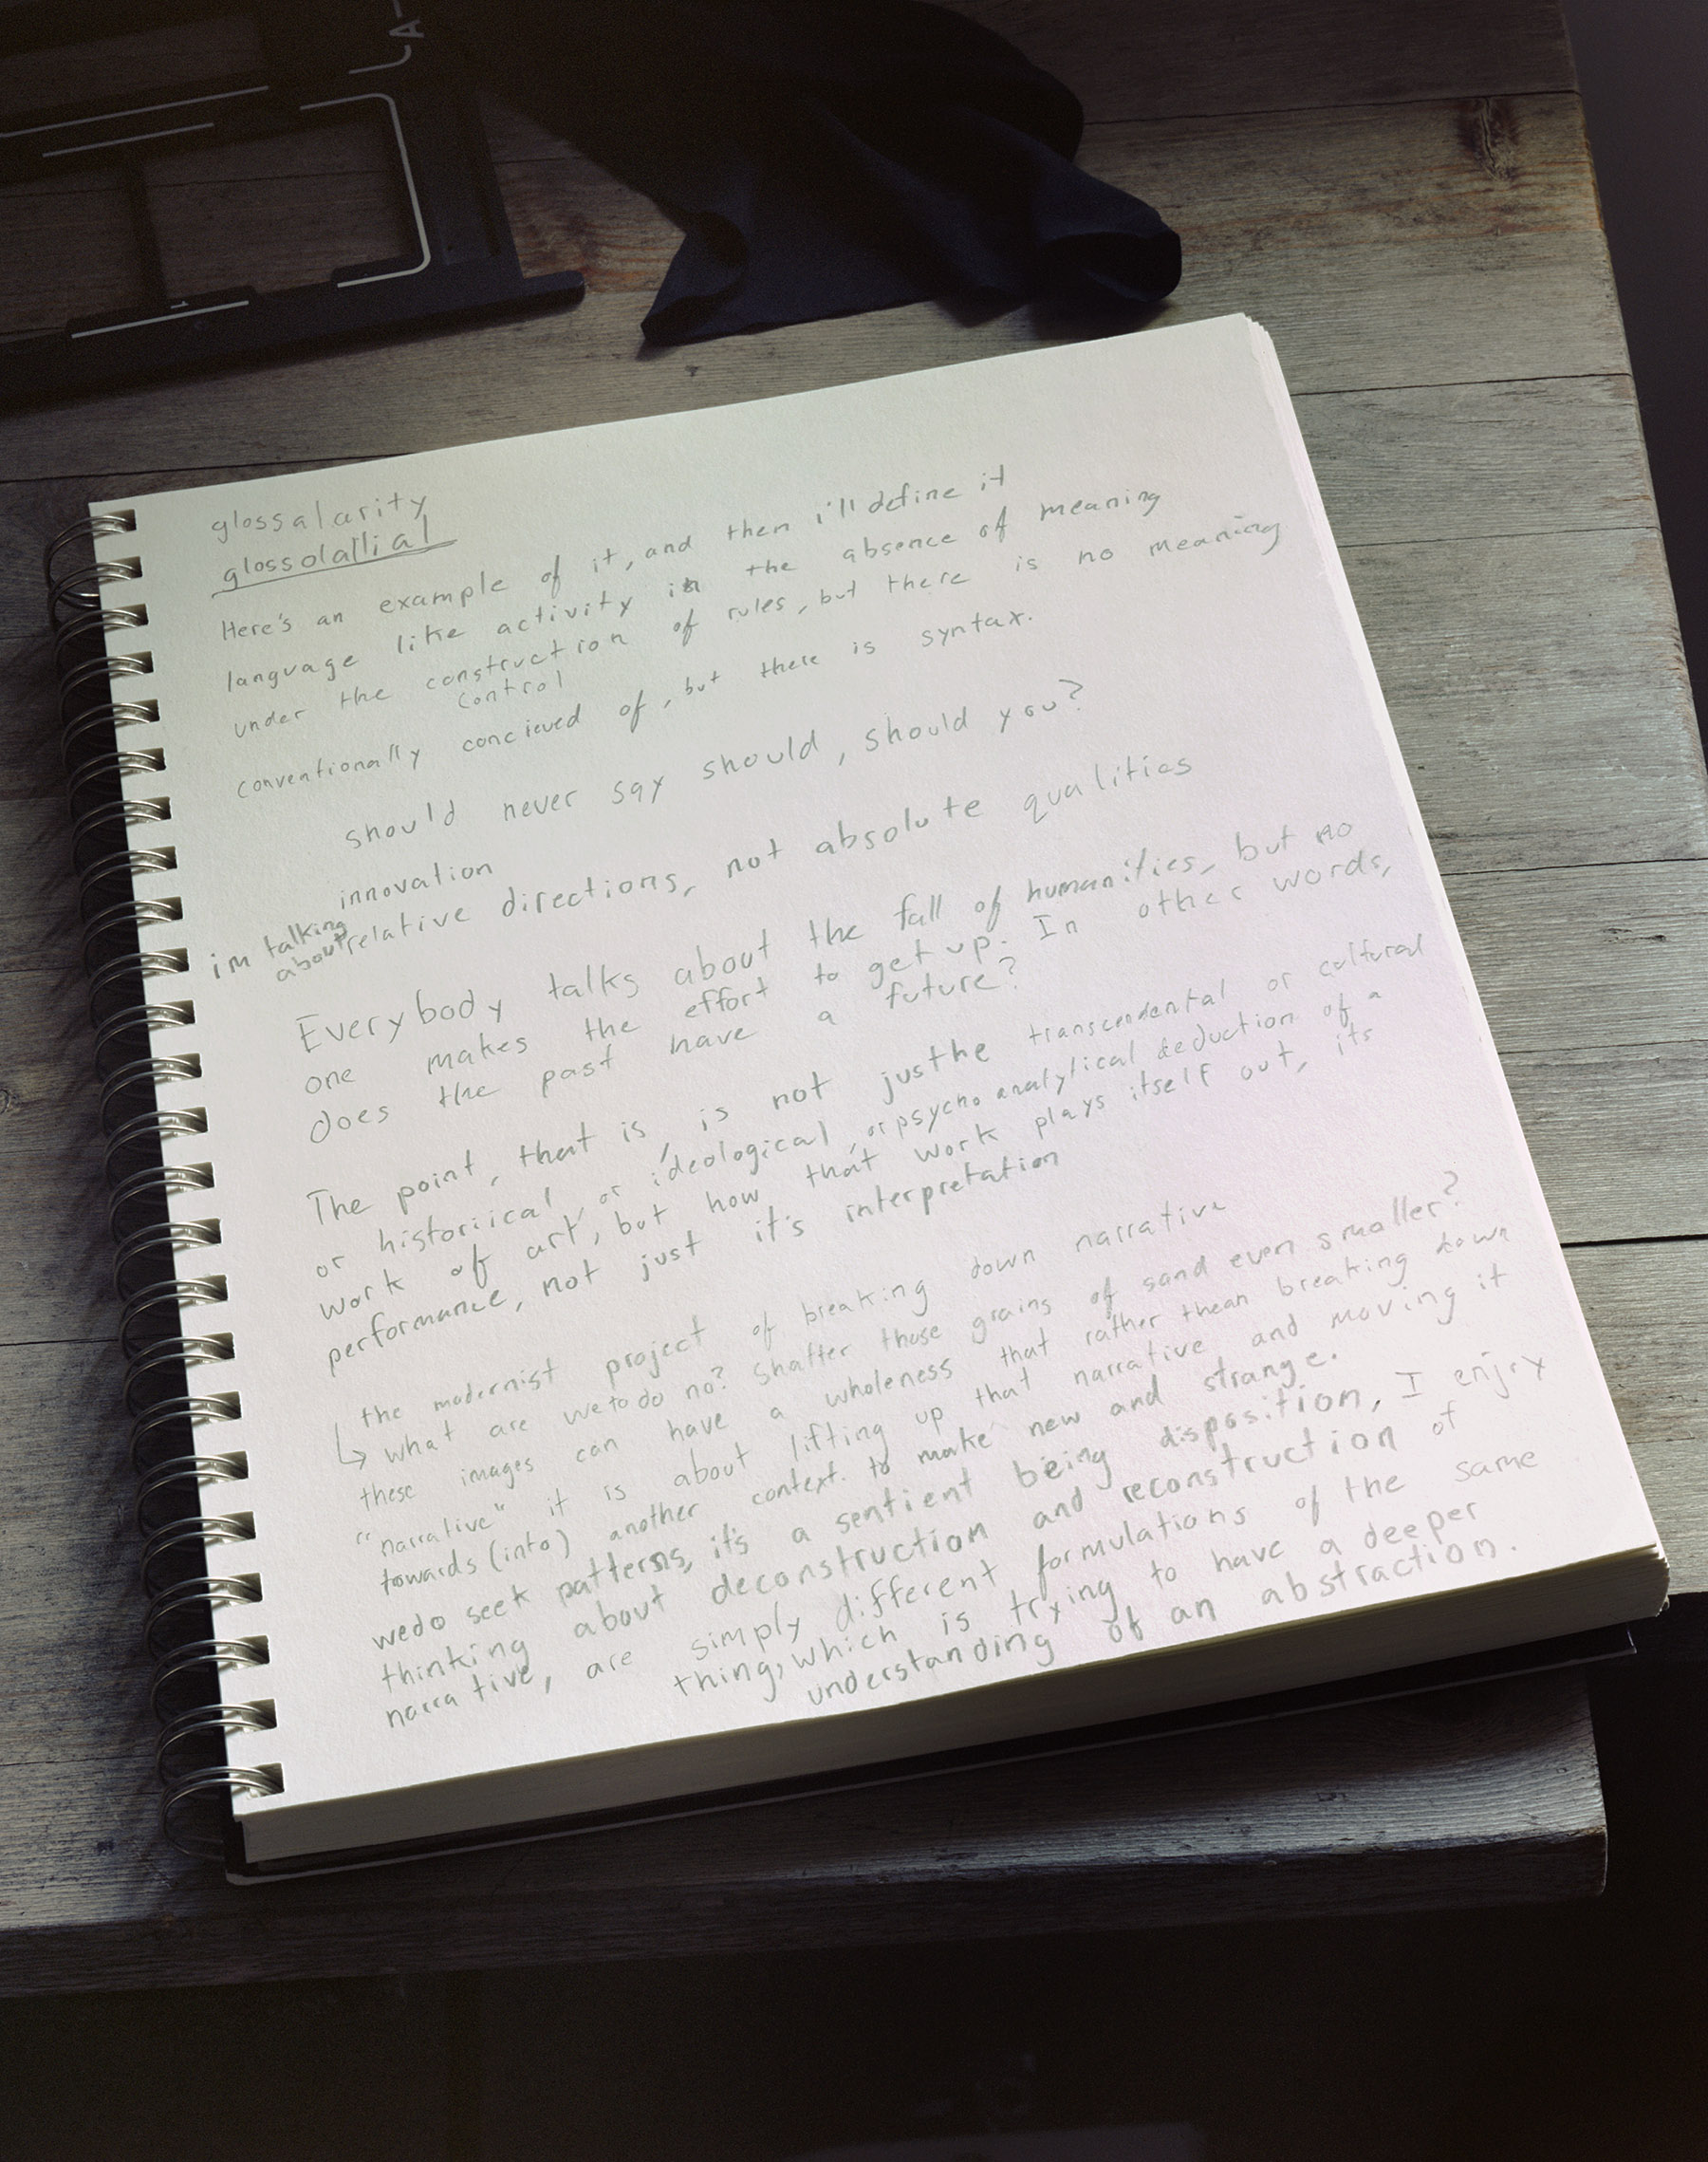 glossalarity
glossolallial
Here's an example of it, and then i'll define it
language like activity in the absence of meaning
under the construction of rules, but there is no meaning
control
conventionally concieved of, but there is syntax.
should never say should, should you?
innovation
im talking
about relative directions, not absolute qualities
Everybody talks about the fall of humanities, but no
one makes the effort to get up. In other words,
does the past have a future?
The point, that is, is not justhe transcendental or cultural
or historiical, or ideological, or psychoanalytical deduction of a
work of art, but how that work plays itself out, its
performance, not just it's interpretation
the modernist project of breaking down narrative
↳ what are we to do no? Shatter those grains of sand even smaller?
these images can have a wholeness that rather thean breaking down
"narrative" it is about lifting up that narrative and moving it
towards (into) another context. to make new and strange.
wedo seek patterns, it's a sentient being disposition, I enjoy
thinking about deconstruction and reconstruction of
narrative, are simply different formulations of the same
thing, which is trying to have a deeper
understanding of an abstraction.